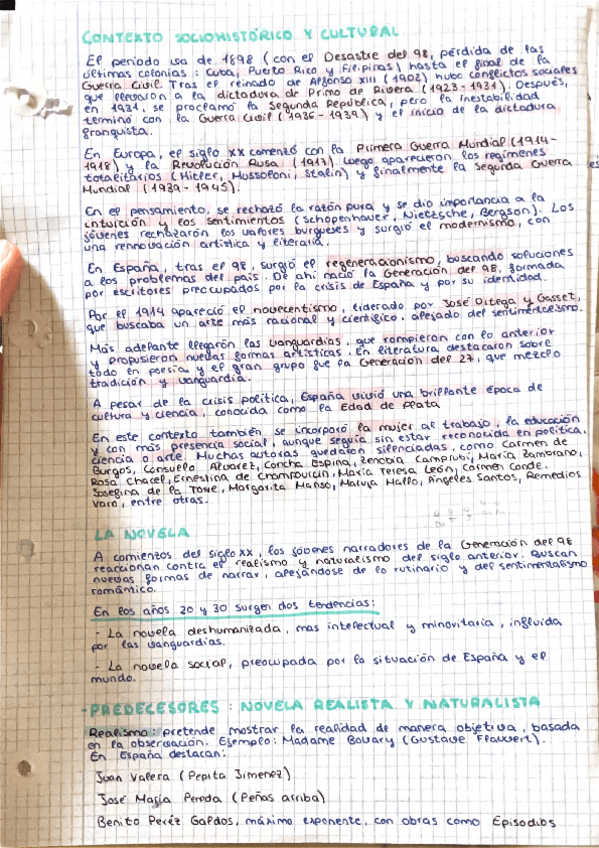 CONTEXTO SOCIOHISTÓRICO Y CULTURAL
El periodo va de 1898 (con el Desastre del 98, pérdida de las
últimas colonias: Cuba, Puerto Rico y Filipinas) hasta el final de la
Guerra Civil. Tras el reinado de Alfonso XIII (1902) hubo conflictos sociales
que llevaron a la dictadura de Primo de Rivera (1923-1931). Después,
en 1931, se proclamó la Segunda República, pero la inestabilidad
terminó con la Guerra Civil (1936-1939) y el inicio de la dictadura
franquista.
En Europa, el siglo XX comenzó con la Primera Guerra Mundial (1914-
1918) y la Revolución Rusa (1917). Luego aparecieron los regímenes
totalitarios (Hitler, Mussolini, Stalin) y finalmente la Segunda Guerra
Mundial (1939-1945).
En el pensamiento, se rechazó la razón pura y se dio importancia a la
intuición y los sentimientos (Schopenhauer, Nietzsche, Bergson). Los
jóvenes rechazaron los valores burgueses y surgió el modernismo, con
una rennovación artística y literaria.
En España, tras el 98, surgió el regeneracionismo, buscando soluciones
a los problemas del país. De ahí nació la Generación del 98, formada
por escritores preocupados por la crisis de España y por su identidad.
Por el 1914 apareció el novecentismo, liderado por José Ortega y Gasset,
que buscaba un arte más racional y científico, alejado del sentimentalismo.
Más adelante llegaron las vanguardias, que rompieron con lo anterior
y propusieron nuevas formas artísticas. En literatura destacaron sobre
todo en poesía y el gran grupo fue la Generación del 27, que mezcló
tradición y vanguardia.
A pesar de la crisis política, España vivió una brillante época de
cultura y ciencia, conocida como la Edad de Plata
En este contexto también se incorporó la mujer al trabajo, la educación
y con más presencia social, aunque seguía sin estar reconocida en política,
ciencia o arte. Muchas autoras quedaron silenciadas, como Carmen de
Burgos, Consuelo Álvarez, Concha Espina, Zenobia Camprubí, María Zambrano,
Rosa Chacel, Ernestina de Champourcin, María Teresa León, Carmen Conde,
Josefina de la Torre, Margarita Manso, Maruja Mallo, Ángeles Santos, Remedios
Varo, entre otras.
LA NOVELA
A comienzos del siglo XX, los jóvenes narradores de la Generación del 98
reaccionan contra el realismo y naturalismo del siglo anterior. Buscan
nuevas formas de narrar, alejándose de lo rutinario y del sentimentalismo
romántico.
En los años 20 y 30 surgen dos tendencias:
- La novela deshumanizada, mas intelectual y minoritaria, influida
por las vanguardias.
- La novela social, preocupada por la situación de España y el
mundo.
-PREDECESORES: NOVELA REALISTA Y NATURALISTA
Realismo: pretende mostrar la realidad de manera objetiva, basada
en la observación. Ejemplo: Madame Bovary (Gustave Flauvert).
En España destacan:
Juan Valera (Pepita Jimenez)
José María Pereda (Peñas arriba)
Benito Peréz Galdos, máximo exponente, con obras como Episodios